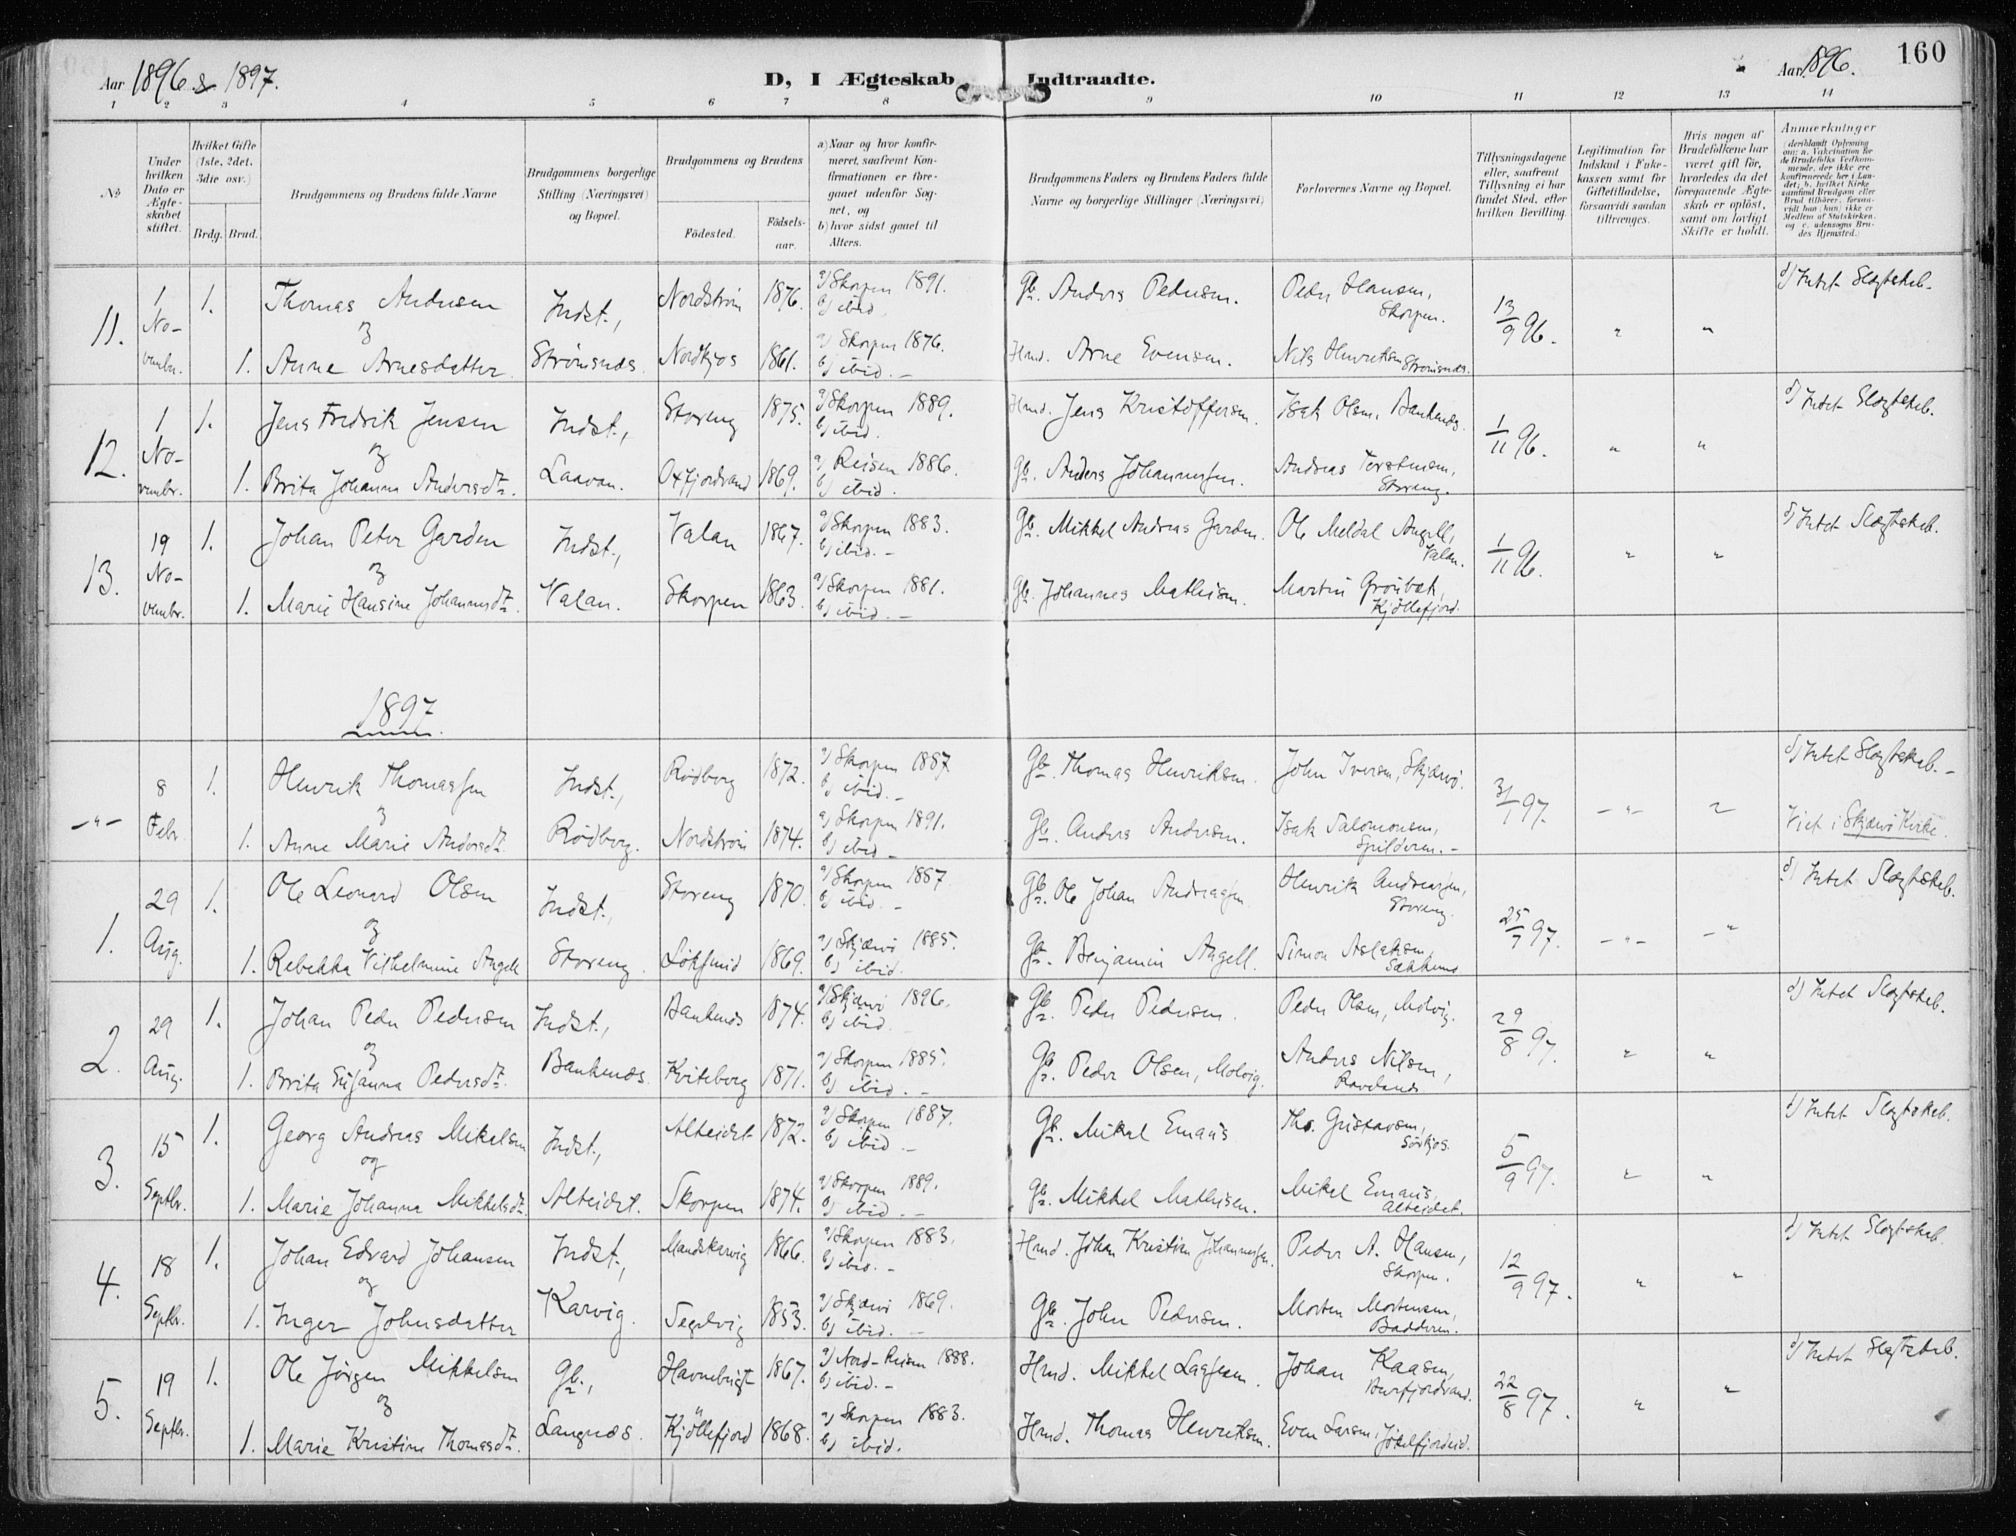 Aar 1896 & 1897.
D, I Ægteskab Indtraadte.
Aar 1896.
160
1 2 3 4 5 6 7 8 9 10 11 12 13 14
No.
Under hvilken Dato er Ægteskabet stiftet.
Hvilket Gifte (1ste, 2det, 3die osv.)
Brdg. Brud.
Brudgommens og Brudens fulde Navne
Brudgommens borgerlige Stilling (Næringsvei) og Bopæl.
Brudgommens og Brudens
Födested. Födsels-aar.
a) Naar og hvor konfirmeret, saafremt Konfirmationen er foregaaet udenfor Sognet, og
b) hvor sidst gaaet til Alters.
Brudgommens Faders og Brudens Faders fulde Navne og borgerlige Stillinger (Næringsvei)
Forlovernes Navne og Bopæl.
Tillysningsdagene eller, saafremt Tillysning ei har fundet Sted, efter hvilken Bevilling.
Legitimation for Indskud i Enkekassen samt for Giftetilladelse, forsaavidt saadan tiltrænges.
Hvis nogen af Brudefolkene har været gift för, hvorledes da det foregaaende Ægteskab er oplöst, samt om lovligt Skifte er holdt.
Anmærkninger (deriblandt Oplysning om: a. Vakcination for de Brudefolks Vedkommende, der ikke ere konfirmerede her i Landet; b. hvilket Kirkesamfund Brudgom eller Brud tilhörer, forsaavidt han (hun) ikke er Medlem af Statskirken, og c. udensogns Brudes Hjemsted.)
11. 1 November. 1. Thomas Andersen Indst., Nordström 1876. a) Skorpen 1891. b) ibid. Gb. Anders Pedersen. Peder Hansen, Skorpen. 13/9 96. " " d) Intet Slægtskab.
og
1. Anne Arnesdatter. Strömsnæs. Nordkjos 1861. a) Skorpen 1876. b) ibid. — Hmd. Arne Evensen. Nils Henriksen Strömsnæs.
12. 1 November. 1. Jens Fredrik Jensen Indst., Storeng 1875. a) Skorpen 1889. b) ibid. Hmd. Jens Kristoffersen. Isak Olsen, Bankenæs. 1/11 96. " " d) Intet Slægtskab.
og
1. Brita Johanna Andersdtr. Laavan. Oxfjordvand 1869. a) Reisen 1886. b) ibid. Gb. Anders Johannessen. Andreas Torstensen, Storeng.
13. 19 November. 1. Johan Peter Garden Indst., Valan 1867. a) Skorpen 1883. b) ibid. — Gb. Mikkel Andreas Garden. Ole Meldal Angell, Valan. 1/11 96. " " d) Intet Slægtskab.
og
1. Marie Hansine Johannesdtr. Valan. Skorpen 1863. a) Skorpen 1881. b) ibid. — Gb. Johannes Mathisen. Martin Grönbek, Kjöllefjord.
1897
—"— 8 Febr. 1. Henrik Thomassen Indst., Rödberg 1872. a) Skorpen 1887 b) ibid. — Gb. Thomas Henriksen. John Iversen, Skjærvö. 31/1 97. —"— " d) Intet Slægtskab. —
og
1. Anne Marie Andersdtr. Rödberg. Nordström 1874. a) Skorpen 1891. b) ibid — Gb. Anders Andersen. Isak Salomonsen, Spilderen. — Viet i Skjærvö Kirke.
1. 29 Aug. 1. Ole Leonard Olsen Indst., Storeng 1870. a) Skorpen 1887 b) ibid. — Gb. Ole Johan Andreassen Henrik Andreassen, Storeng. 25/7 97. —"— —"— d) Intet Slægtskab.
og
1. Rebekka Vilhelmine Angell Storeng. Löksund 1869. a) Skjærvö 1885. b) ibid. Gb. Benjamin Angell. Simon Aslaksen,
2. 29 Aug. 1. Johan Peder Pedersen Indst., Bankenæs 1874. a) Skjærvö 1896. b) ibid. Gb. Peder Pedersen. Peder Olsen, Molvig. 29/8 97. " " d) Intet Slægtskab.
og
1. Brita Susanna Pedersdtr. Bankenæs. Kviteberg 1871. a) Skorpen 1885. b) ibid. — Gb. Peder Olsen, Molvig. Anders Nilsen,
3. 15 Septbr. 1. Georg Andreas Mikelsen Indst., Alteidet 1872. a) Skorpen 1887. b) ibid. — Gb. Mikal Emaus Ths. Gustavsen, Sörkjos. 5/9 97. " " d) Intet Slægtskab.
og
1. Marie Johanna Mikkelsdtr. Alteidet. Skorpen 1874. a) Skorpen 1889. b) ibid. — Gb. Mikkel Mathisen. Mikel Emaus, Alteidet.
4. 18 Septbr. 1. Johan Edvard Johansen Indst., Mandskarvig 1866. a) Skorpen 1883. b) ibid. — Hmd. Johan Kristian Johannessen. Peder A. Hansen, Skorpen. 12/9 97. " " d) Intet Slægtskab.
og
1. Inger Johnsdatter Karvig. Segelvig 1853. a) Skjærvö 1869. b) ibid. — Gb. John Pedersen. Morten Mortensen, Badderen.
5. 19 Septbr. 1. Ole Jörgen Mikkelsen Gb., Havnebugt 1867. a) Nord-Reisen 1888. b) ibid. — Hmd. Mikkel Lassesen. Johan Kaasen, Burfjordvand. 22/8 97. " " d) Intet Slægtskab.
og
1. Marie Kristine Thomasdtr. Langnæs. Kjöllefjord 1868. a) Skorpen 1883. b) ibid. Hmd. Thomas Henriksen. Even Larsen, Jökelfjordeid.